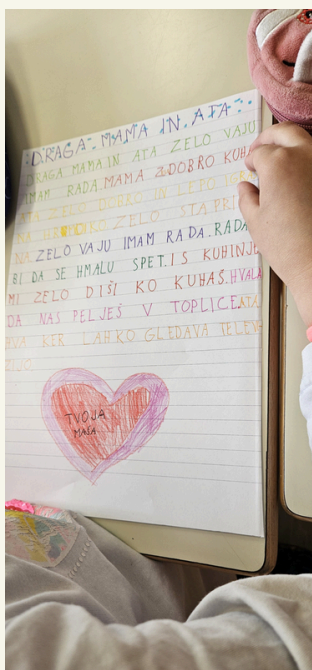 DRAGA MAMA IN ATA
DRAGA MAMA IN ATA ZELO VAJU
IMAM RADA. MAMA ZDOBRO KUHA
ATA ZELO DOBRO IN LEPO IGRA
NA ZELO STA PRI
NA ZELO VAJU IMAM RADA. RADA
BI DA SE HMALU SPET. IS KUHINJE
MI ZELO DIŠI KO KUHAŠ. HVALA
DA NAS PELJEŠ V TOPLICE. ATA
HVA KER LAHKO GLEDAVA TELEV
ZIJO.
TVOJA
MAŠA